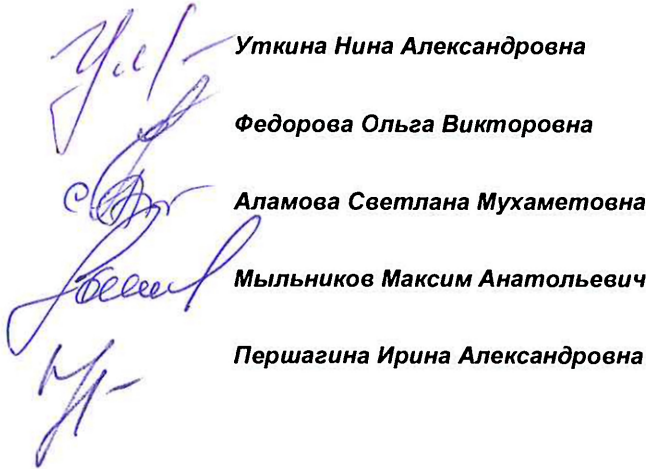 Уткина Нина Александровна
Федорова Ольга Викторовна
Аламова Светлана Мухаметовна
Мыльников Максим Анатольевич
Першагина Ирина Александровна